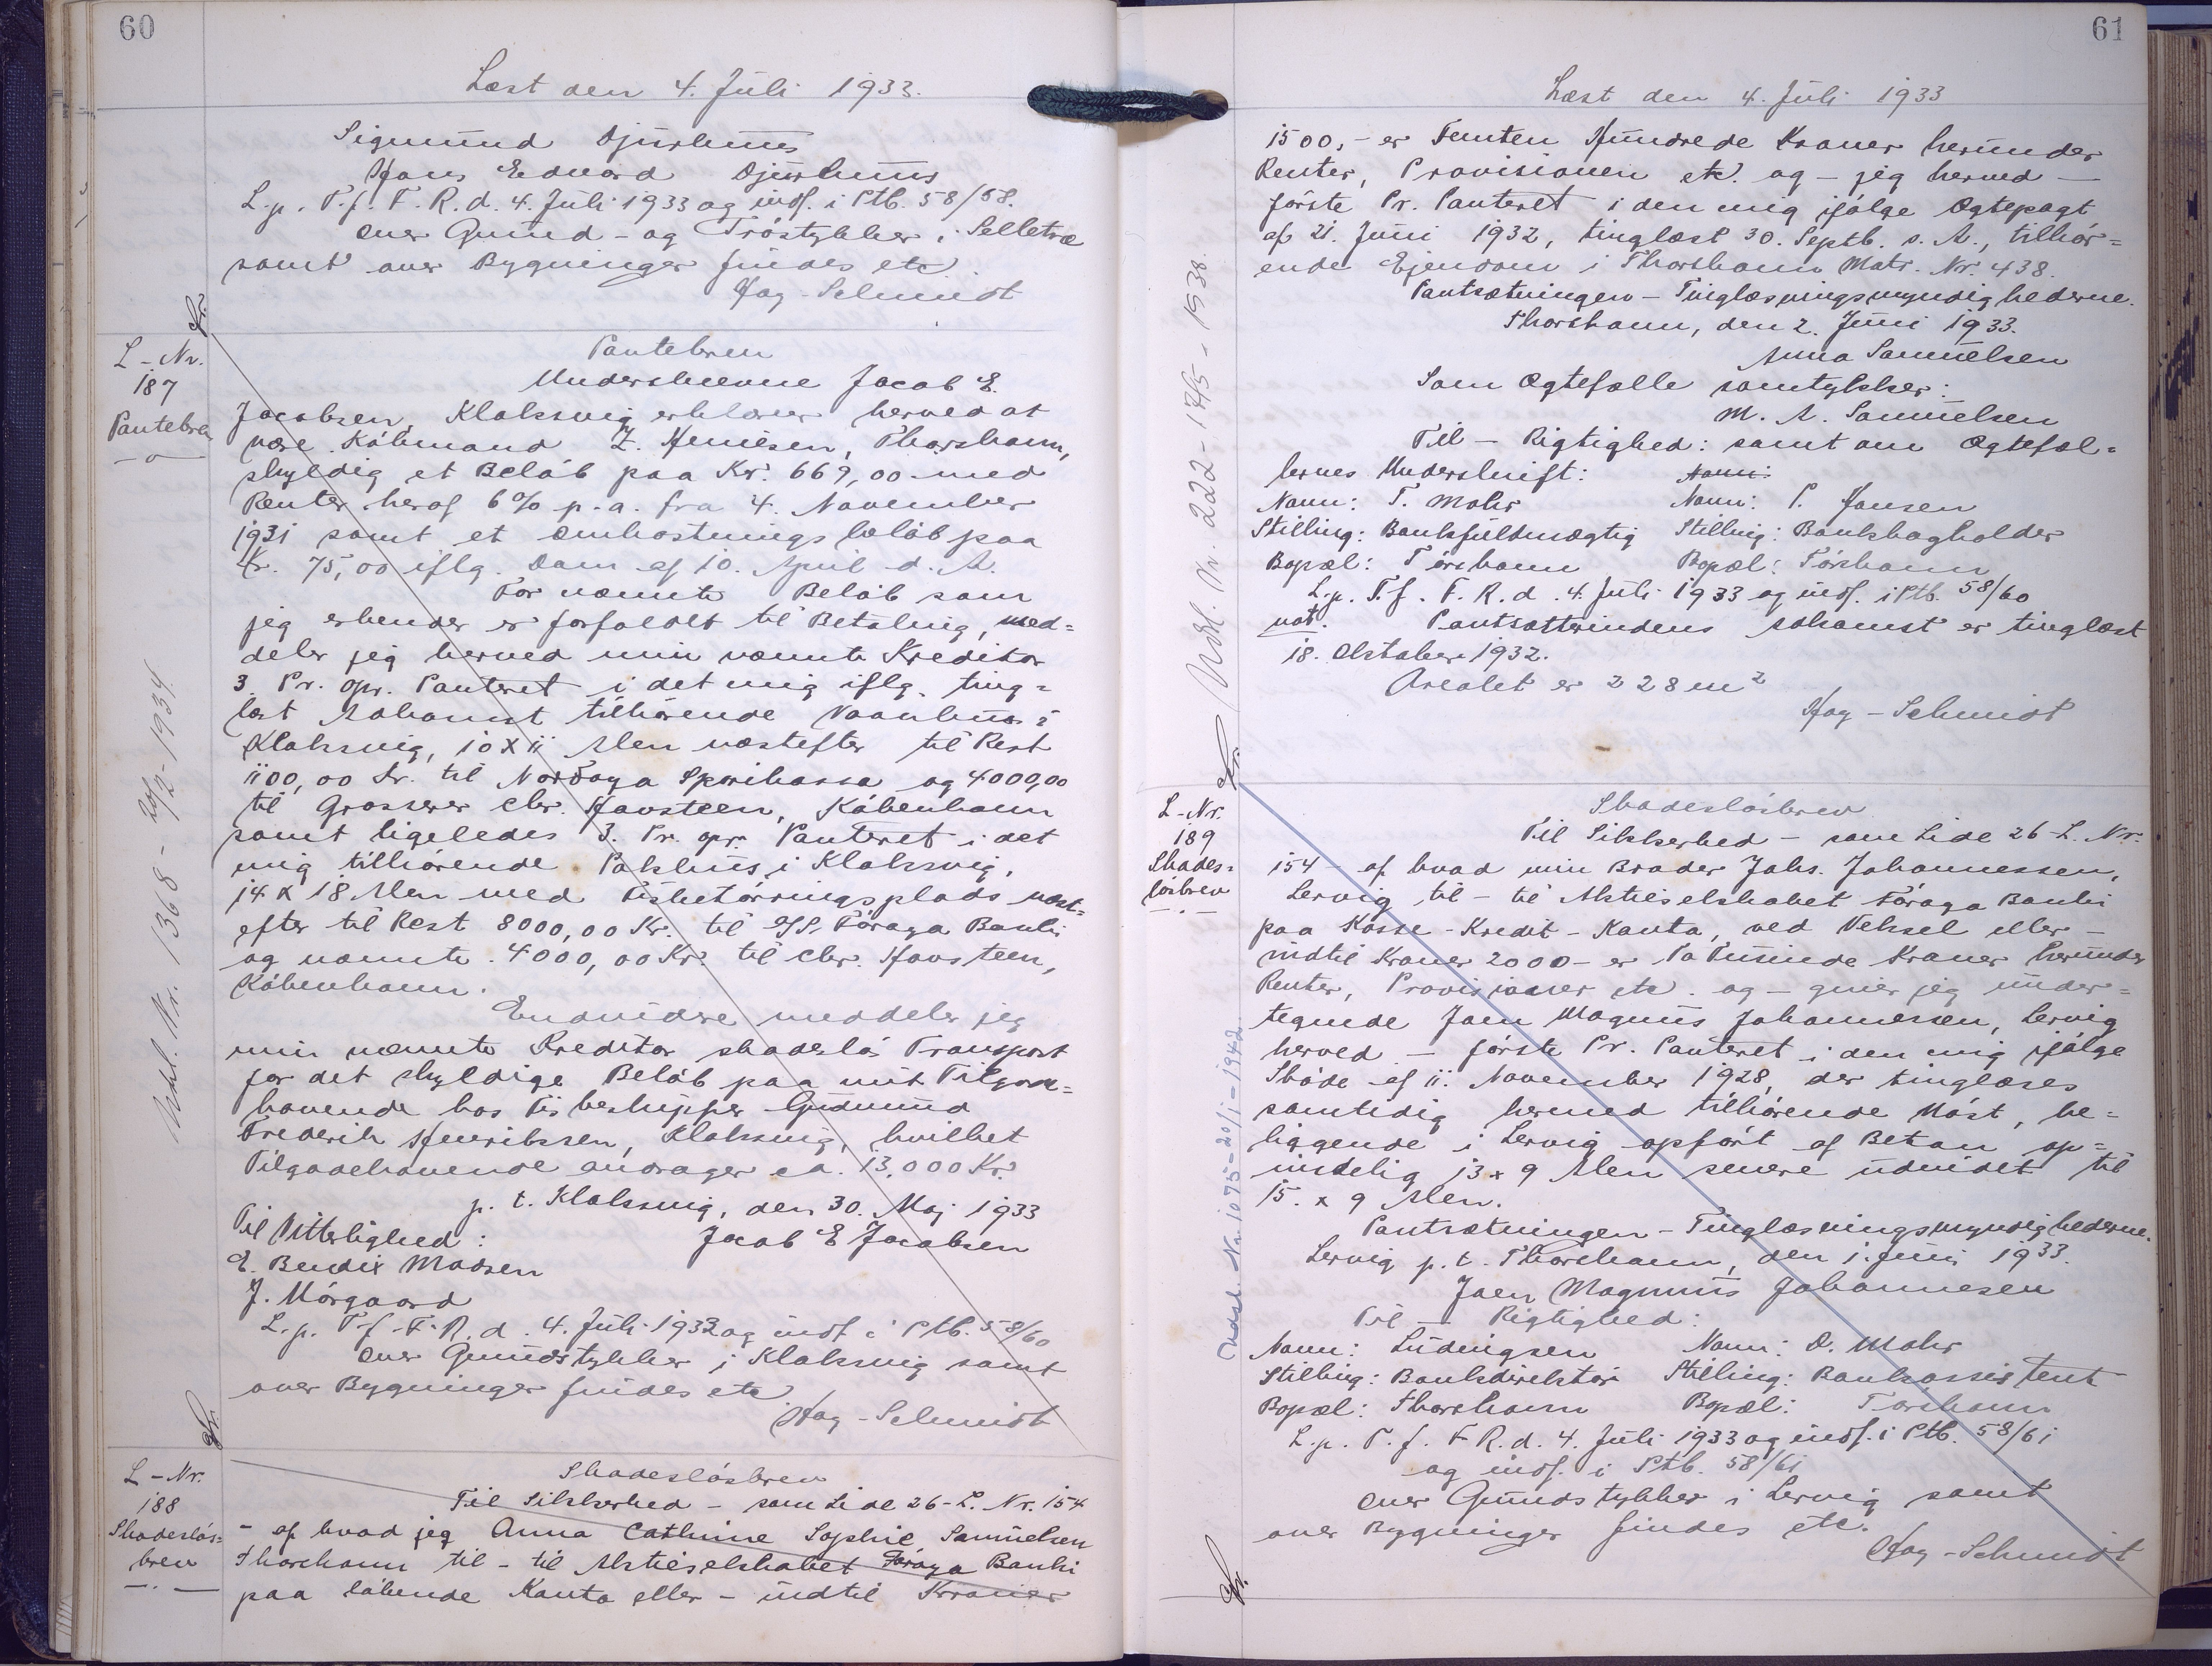 60
Læst den 4. Juli 1933.
Sigmund Djurhuus
Hans Edvard Djurhuus
L.p. T.f. F.R. d. 4. Juli 1933 og indf. i Ptb. 58/58.
Over Grund- og Tröstykker i Selletræ
samt over Bygninger findes etc.
Høg-Schmidt
L-Nr.
187
Pantebrev
Pantebrev
Underskrevne Jacob E.
Jacobsen, Klaksvig erklærer herved at
være Købmand Z. Heinesen, Thorshavn,
skyldig et Beløb paa Kr. 669,00 med
Renter heraf 6% p.a. fra 4. November
1931 samt et Omkostningsbeløb paa
Kr. 75,00 iflg. Dom af 10. April d. A.
For nævnte Beløb som
jeg erkender er forfaldt til Betaling, med=
deler jeg herved min nævnte Kreditor
3. Pr. opr. Panteret i det mig iflg. ting=
læst Adkomst tilhørende Vaanhus i
Klaksvig, 10 X 11 Alen næstefter til Rest
1100,00 Kr. til Nordoya Sparikassa og 4000,00
til Grosserer Chr. Havsteen, København
samt ligeledes 3. Pr. opr. Panteret i det
mig tilhørende Pakhus i Klaksvig,
14 x 18 Alen med Fisketørringsplads næst=
efter til Rest 8000,00 Kr. til A/S. Föroya Banki
og nævnte 4000,00 Kr. til Chr. Havsteen,
København.
Endvidere meddeler jeg
min nævnte Kreditor skadesløs Transport
for det skyldige Beløb paa mit Tilgode=
havende hos Fiskeskipper Gudmund
Frederik Henriksen, Klaksvig, hvilket
Tilgodehavende andrager ca. 13.000 Kr.
p. t. Klaksvig, den 30. Maj 1933
Til Vitterlighed: Jacob E Jacobsen
E. Bendix Madsen
J. Mörgaard
L.p. T.f. F.R. d. 4. Juli 1933 og indf. i Ptb. 58/60
Over Grundstykker i Klaksvig samt
over Bygninger findes etc.
Høg-Schmidt
Udsl. Nr. 1368 - 20/2-1934.
L-Nr.
188
Skadesløs=
brev
Skadesløsbrev
Til Sikkerhed - som Side 26-L. Nr. 154
- af hvad jeg Anna Cathrine Sophie Samuelsen
Thorshavn til - til Aktieselskabet Föroya Banki
paa løbende Konto eller - indtil Kroner
61
Læst den 4. Juli 1933
1500,- er Femten Hundrede Kroner herunder
Renter, Provisionen etc. og - jeg herved -
første Pr. Panteret i den mig ifølge Ægtepagt
af 21. Juni 1932, tinglæst 30. Septb. s. A., tilhør=
ende Ejendom i Thorshavn Matr. Nr. 438.
Pantsætningen - Tinglæsningsmyndighederne.
Thorshavn, den 2. Juni 1933.
Anna Samuelsen
Som Ægtefælle samtykker:
M. A. Samuelsen
Til - Rigtighed: samt om Ægtefæl=
lernes Underskrift: Navn:
Navn: T. Mohr Navn: P. Jansen
Stilling: Bankfuldmægtig Stilling: Bankbogholder
Bopæl: Törshavn Bopæl: Tórshavn
L.p. T.f. F.R. d. 4. Juli 1933 og indf. i Ptb. 58/60
not. Pantsætterindens Adkomst er tinglæst
18. Oktober 1932.
Arealet er 228 m²
Høg-Schmidt
Udsl. Nr. 222 - 17/5 - 1938.
L-Nr.
189
Skades=
løsbrev
Skadesløsbrev
Til Sikkerhed - som Side 26-L. Nr.
154 - af hvad min Broder Johs. Johannessen,
Lervig til - til Aktieselskabet Föroya Banki
paa Kasse-Kredit-Konto, ved Veksel eller -
indtil Kroner 2000- er To Tusinde Kroner herunder
Renter, Provisioner etc. og - giver jeg under=
tegnede Joen Magnus Johannesen, Lervig
herved - første Pr. Panteret i den mig ifølge
Skøde af 11. November 1928, der tinglæses
samtidig hermed tilhørende Nøst, be=
liggende i Lervig opført af Beton op=
rindelig 13 x 9 Alen senere udvidet til
15. x 9 Alen.
Pantsætningen - Tinglæsningsmyndighederne.
Lervig p. t. Thorshavn, den 1. Juni 1933.
Joen Magnus Johannesen
Til - Rigtighed:
Navn: Ludvigsen Navn: D. Mohr
Stilling: Bankdirektør Stilling: Bankassistent
Bopæl: Thorshavn Bopæl: Torshavn
L.p. T.f. F.R. d. 4. Juli 1933 og indf. i Ptb. 58/61
og indf. i Ptb. 58/61
Over Grundstykker i Lervig samt
over Bygninger findes etc.
Høg-Schmidt
Udsl. Nr. 1075 - 20/1 - 1942.